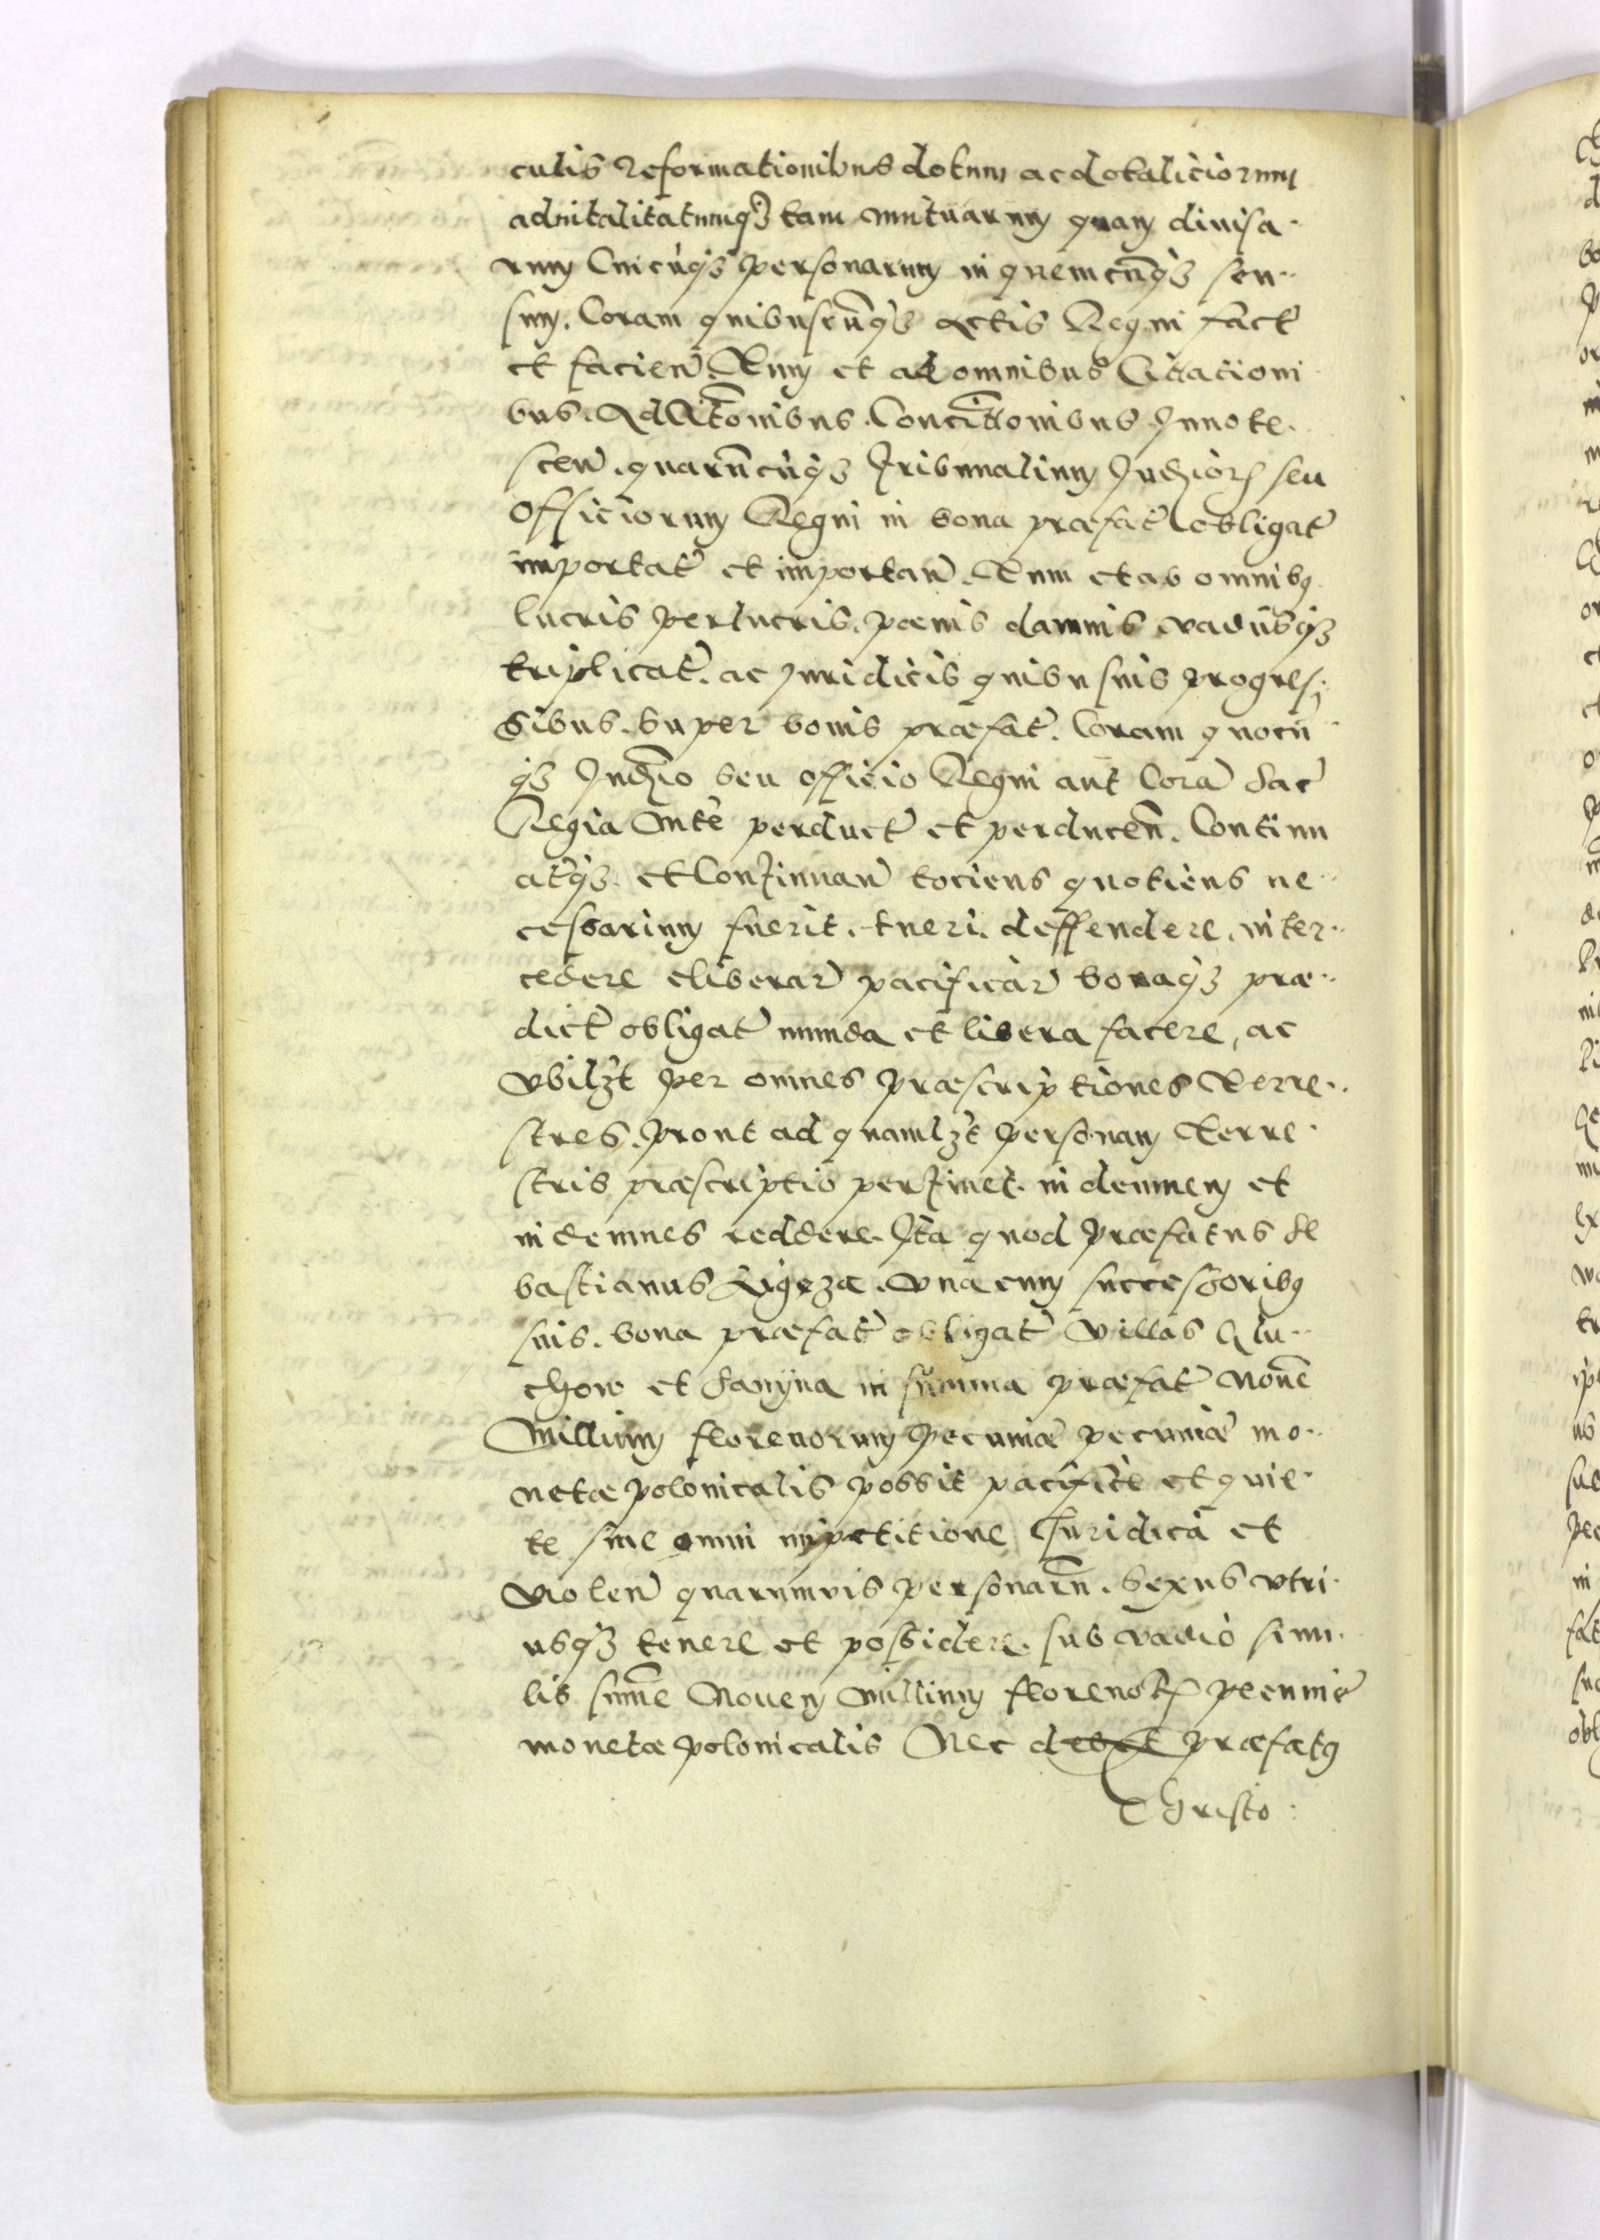 culis Reformationibus dotum ac dotaliciorum
advitalitatumq3 tam mutuarum quam divisa-
rum Cuicūq3 personarum in quemcūq3 sen-
sum. Coram quibuscūq3 Actis Regni fact̃
et facien̄. Tum et ab omnibus Citacioni
bus. Adcitōnibus. Concitōnibus Innote-
scen̄. quarūcūq3 Tribunalium Judicior̃ seu
Officiorum Regni in bona præfat̃ obligat̃
importat̃ et importan̄. Tum et ab omnib9
lucris perlucris. pænis damnis vadiisq3
triplicat̃. ac Juridicis quibusuis progres-
sibus. Super bonis præfat̃. Coram quocū
q3 Judicio seu officio Regni aut Corā Sac̃
Regia Mtẽ perduct̃ et perducen̄. Continu
atq3 et Continuan̄ tociens quotiens ne-
cessarium fuerit. tueri. deffendere. inter-
cedere eliberar̃ pacificar̃ bonaq3 præ-
dict̃ obligat̃ munda et libera facere, ac
vbilz̃t per omnes præscriptiones Terre-
stres. prout ad quamlz̃t personam Terre-
stris præscriptio pertinet. indemnem et
indemnes reddere. Ita quod præfatus Se
bastianus Ligęza. Vna cum successorib9
suis. bona præfat̃ obligat̃ villas Glu-
chow et Sanÿna in summa præfat̃ Novē
Millium florenorum pecuniæ pecuniæ mo-
netæ polonicalis possit pacificẽ et quie-
te sine omni impetitione Juridica et
violen̄ quarumvis personarū. Sexus vtri-
usq3 tenere et possidere. sub vadio simi-
lis summẽ Novem Millium florenor̃ pecuniẽ
monetæ polonicalis Nec debet præfat9
Christo-